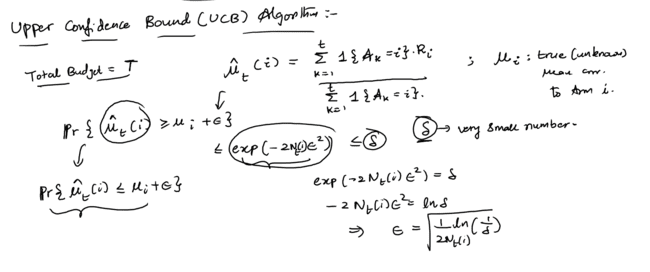 Upper Confidence Bound (UCB) Algorithm :-
Total Budget = T
μ̂_t(i) = Σ_{k=1}^{t} 1{A_k = i}.R_i / Σ_{k=1}^{t} 1{A_k = i}. ; μ_i : true (unknown)
mean corr.
to Arm i.
Pr{ μ̂_t(i) ≥ μ_i + ϵ}
≤ exp(-2N_t(i)ϵ²) ≤ δ
δ → very small number -
Pr{ μ̂_t(i) ≤ μ_i + ϵ}
exp(-2N_t(i)ϵ²) = δ
-2N_t(i)ϵ² = ln δ
⇒ ϵ = √(1/(2N_t(i)) ln(1/δ))